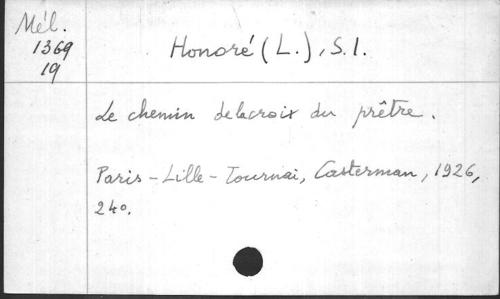 Mél.
1369
19
Honoré (L.), S.I.
Le chemin delacroix du prêtre.
Paris - Lille - Tournai, Casterman, 1926,
24°.